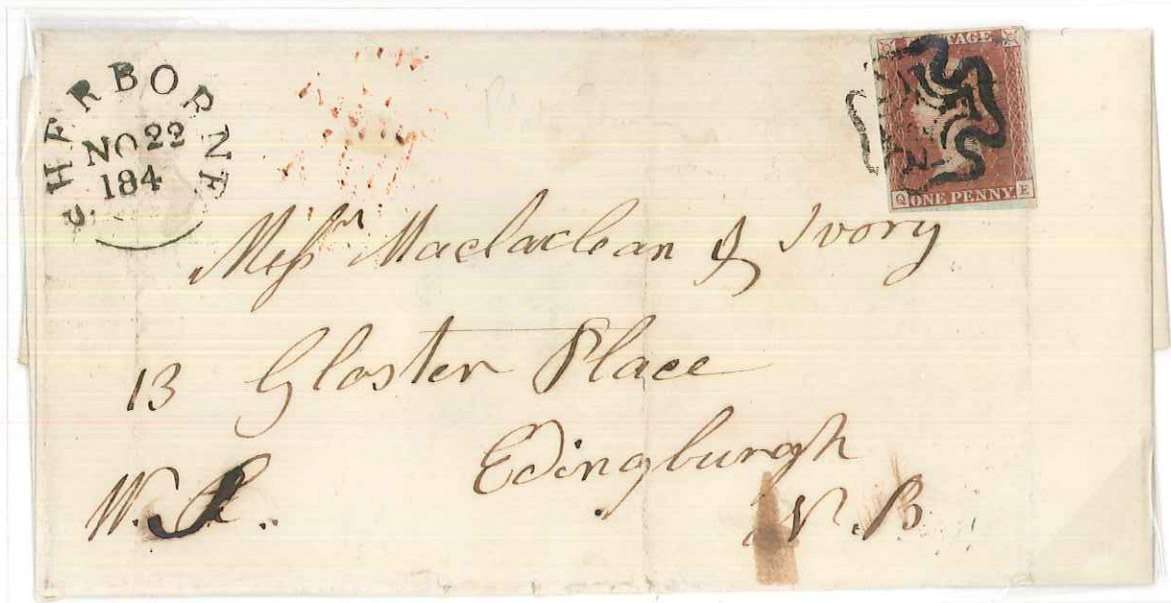 SHERBORNE
NO 22
184
POSTAGE
Q ONE PENNY E
Messrs Maclaclean & Ivory
13 Gloster Place
Edingburgh
W. S. N. B